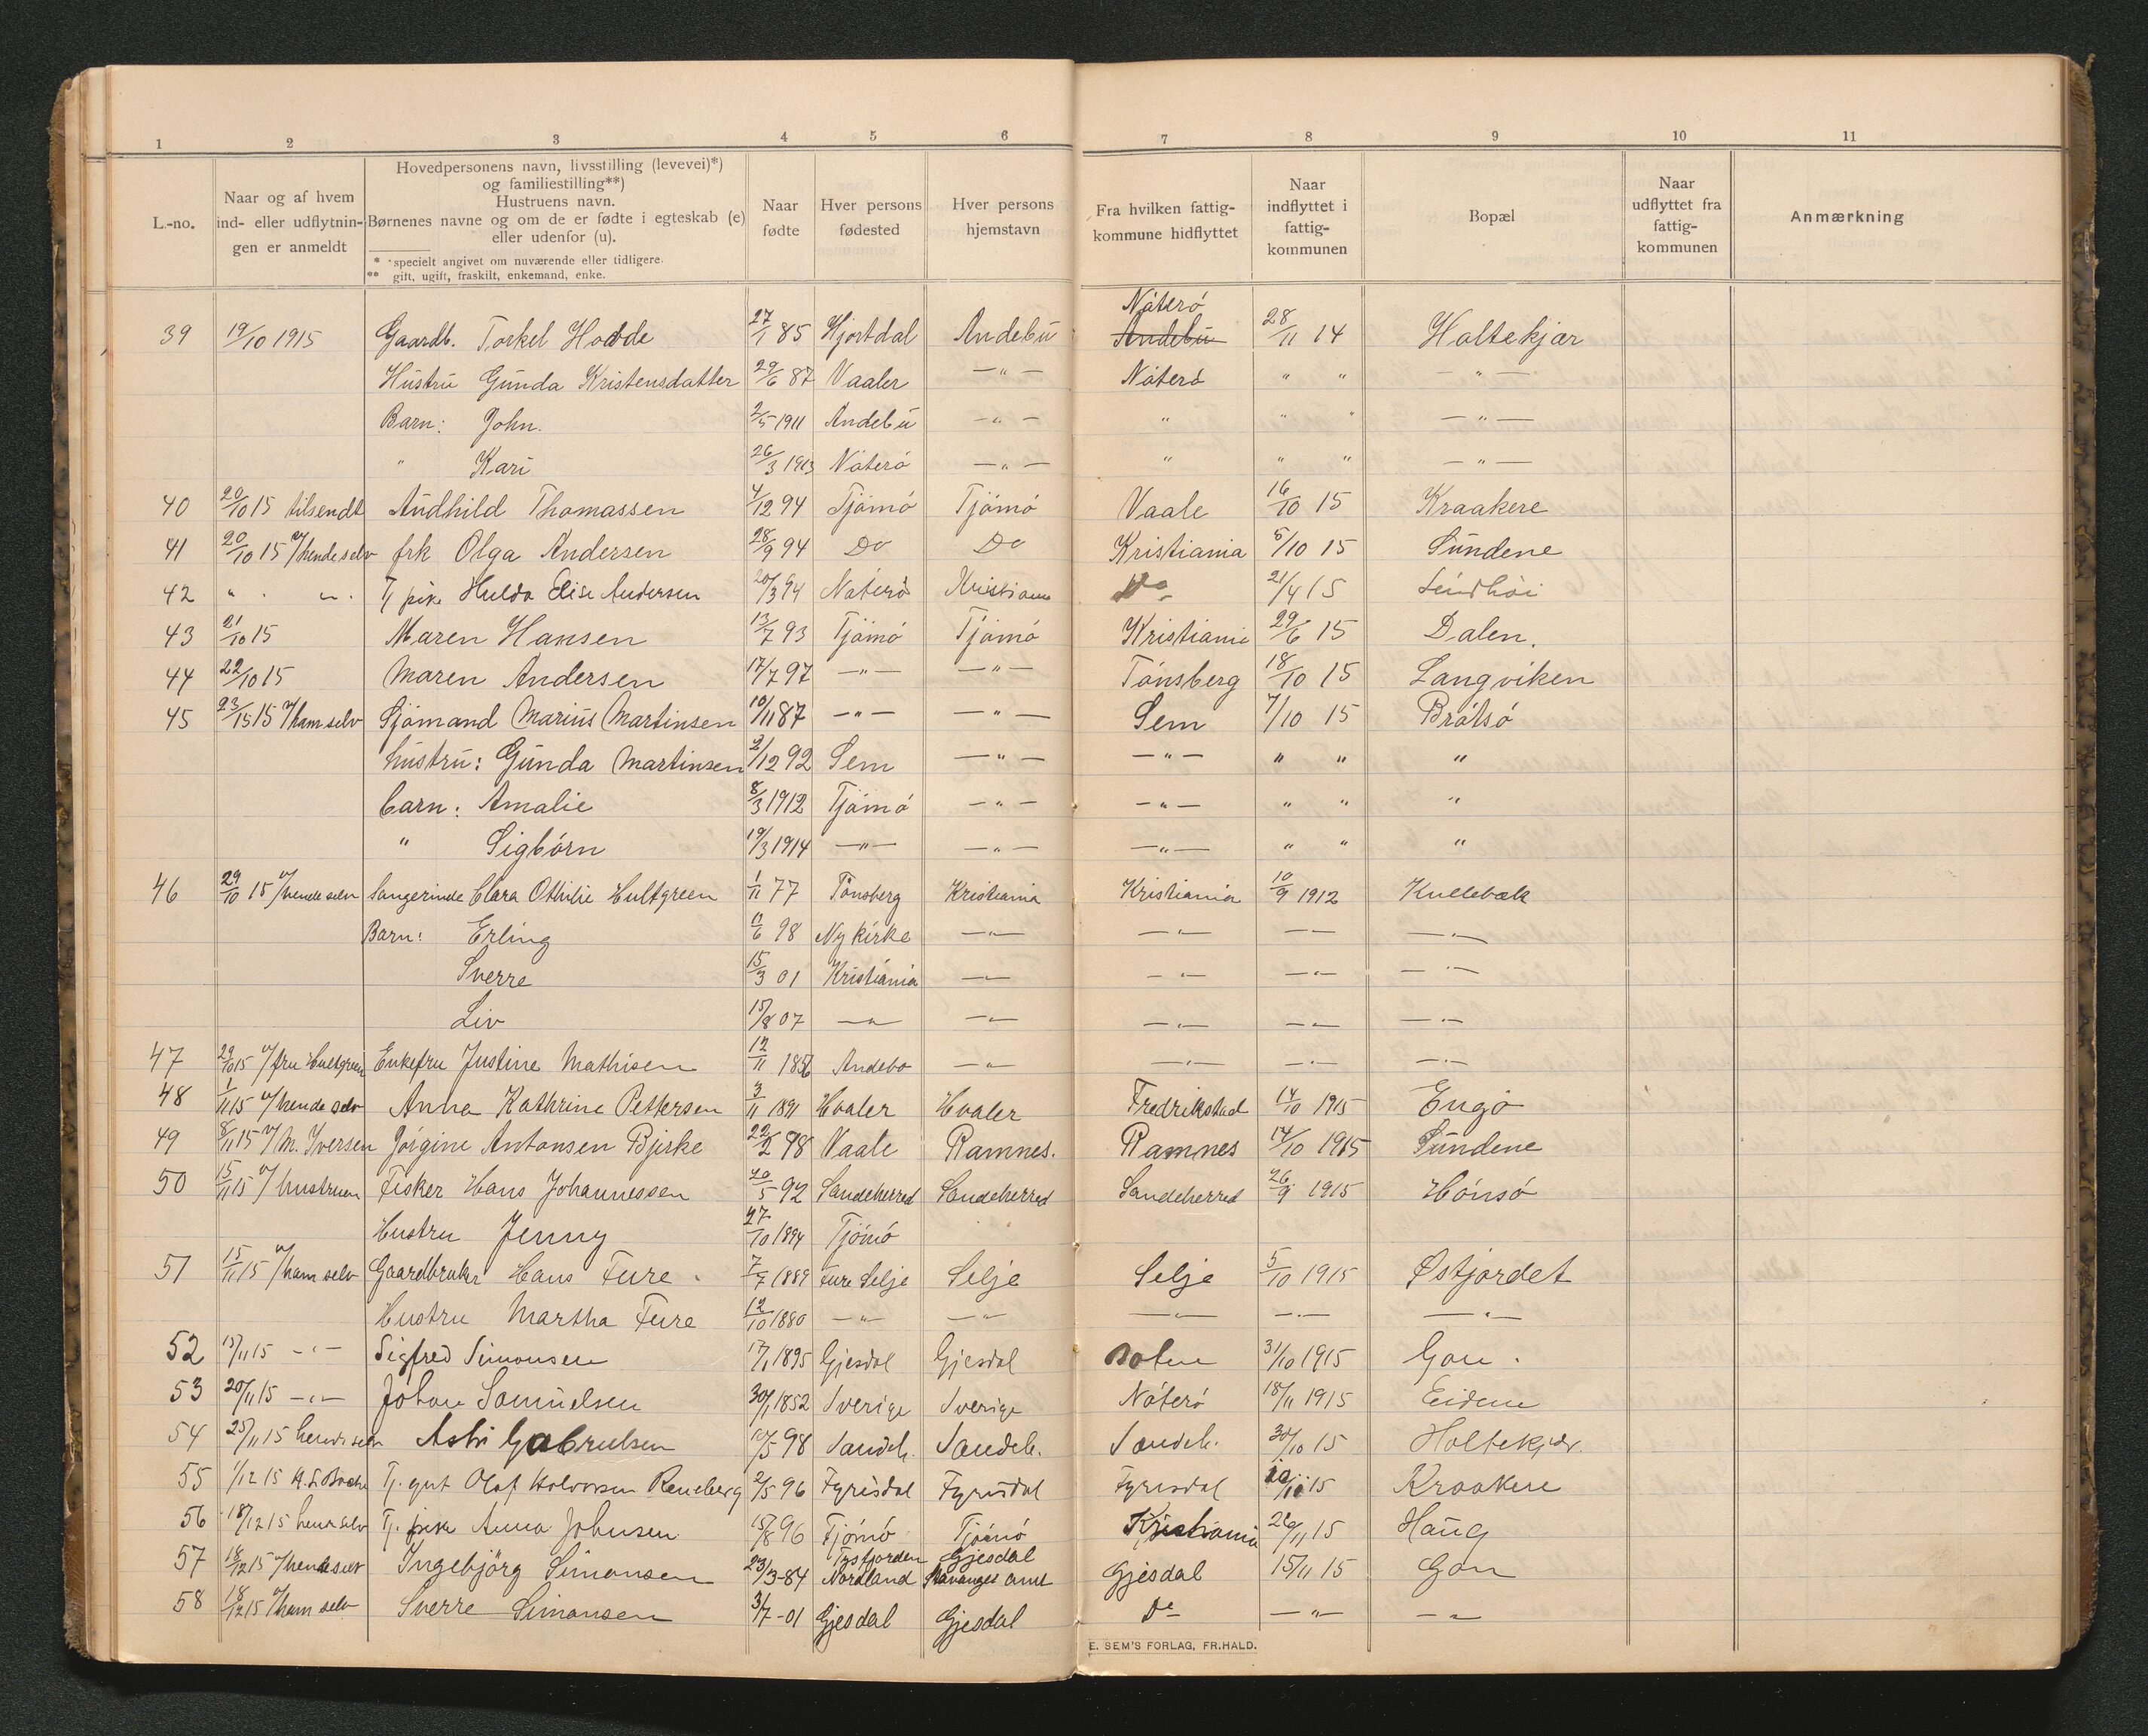 1 2 3 4 5 6 7 8 9 10 11
L.-no.
Naar og af hvem
ind- eller udflytnin-
gen er anmeldt
Hovedpersonens navn, livsstilling (levevei)*)
og familiestilling**)
Hustruens navn.
Børnenes navne og om de er fødte i egteskab (e)
eller udenfor (u).
* specielt angivet om nuværende eller tidligere.
** gift, ugift, fraskilt, enkemand, enke.
Naar
fødte
Hver persons
fødested
Hver persons
hjemstavn
Fra hvilken fattig-
kommune hidflyttet
Naar
indflyttet i
fattig-
kommunen
Bopæl
Naar
udflyttet fra
fattig-
kommunen
Anmærkning
Nøterö
39 19/10 1915 Gaardb. Torkel Hodde 27/1 85 Hjortdal Andebu Andebu 28/11 14 Holtekjær
Hustru Gunda Kristensdatter 29/6 87 Vaaler —"— Nøterö " " —"—
Barn: John. 2/5 1911 Andebu —"— " " " —"—
" Kari 26/3 1913 Nøterö —"— " " " —"—
40 20/10 15 tilsendt Audhild Thomassen 4/12 94 Tjømö Tjømö Vaale 16/10 15 Kraakere
41 20/10 15 v/hende selv frk Olga Andersen 28/9 94 Do Do Kristiania 5/10 15 Sundene
42 " " " Tj pike Hulda Elise Andersen 20/3 94 Nøterö Kristiania Do 21/4 15 Lindhöi
43 21/10 15 Maren Hansen 13/7 93 Tjømö Tjømö Kristiania 29/6 15 Dalen.
44 22/10 15 Maren Andersen 17/7 97 —"— —"— Tønsberg 18/10 15 Langviken
45 23/15 15 v/ham selv Sjømand Marius Martinsen 10/11 87 —"— —"— Sem 7/10 15 Brøtsö
hustru: Gunda Martinsen 2/12 92 Sem —"— —"— " " "
barn: Amalie 8/3 1912 Tjømö —"— —"— " " "
" Sigbörn 19/3 1914 —"— —"— —"— " " "
46 29/10 15 v/hende selv Sangerinde Clara Othilie Hultgreen 1/11 77 Tønsberg Kristiania Kristiania 10/9 1912 Kullebæk
Barn: Erling 11/6 98 Nykirke —"— —"— —"— —"—
Sverre 15/3 01 Kristiania —"— —"— —"— —"—
Liv 15/8 07 —"— —"— —"— —"— —"—
47 29/10 15 v/fru Hultgreen Enkefru Justine Mathisen 12/11 1856 Andebo —"— —"— —"— —"—
48 1/11 15 v/hende selv Anna Kathrine Pettersen 3/11 1891 Hvaler Hvaler Fredrikstad 14/10 1915 Engö
49 8/11 15 v/M. Iversen Jörgine Antonsen Bjerke 22/2 98 Vaale Ramnes. Ramnes 14/10 1915 Sundene
50 15/11 15 v/hustruen Fisker Hans Johannessen 20/5 92 Sandeherred Sandeherred Sandeherred 26/9 1915 Hönsö
Hustru Jenny 27/10 1894 Tjömö
51 15/11 15 v/ham selv Gaardbruker Hans Fure. 7/7 1889 Fure Selje Selje Selje 5/10 1915 Østjordet
Hustru Martha Fure 12/10 1880 —"— —"— —"— —"— —"—
52 15/11 15 —"— Sigfred Simonsen 17/1 1895 Gjesdal Gjesdal 31/10 1915 Gon.
53 20/11 15 —"— Johan Samuelsen 30/1 1852 Sverige Sverige Nøterö 18/11 1915 Eidene
54 25/11 15 hende selv Astri Gabrielsen 10/5 98 Sandeh. Sandeh. Sandeh. 30/10 15 Holtekjær.
55 1/12 15 Tj. gut Olaf Halvorsen Reneberg 2/5 96 Fyrisdal Fyrisdal Fyrisdal 15 Kraakere
56 18/12 15 hende selv Tj. pike Anna Johnsen 15/8 96 Tjömö Tjömö Kristiania 26/11 15 Haug
57 18/12 15 v/hende selv Ingebjörg Simonsen 23/3-84 Tysfjorden Nordland Gjesdal Stavanger amt Gjesdal 15/11 15 Gon
58 18/12 15 v/ham selv Sverre Simonsen 3/7-01 Gjesdal Gjesdal Do —"— —"—
E. SEM'S FORLAG, FR.HALD.